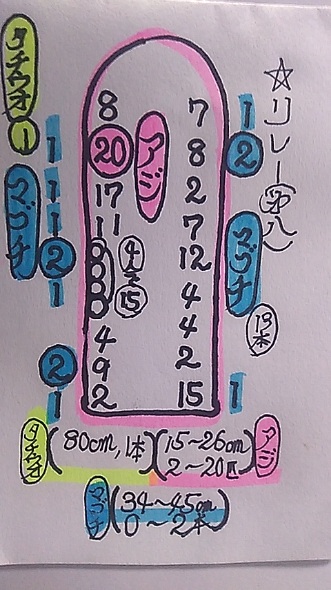 ☆リレー(第八)
タチウオ
1
マゴチ
1
1
1
2
1
2
1
アジ
8
20
17
11
4人で15
4
9
2
7
8
2
7
12
4
4
2
15
1
2
マゴチ
13本
1
タチウオ(80cm,1本)
(15~26cm
2~20匹)アジ
マゴチ(34~45cm
0~2本)